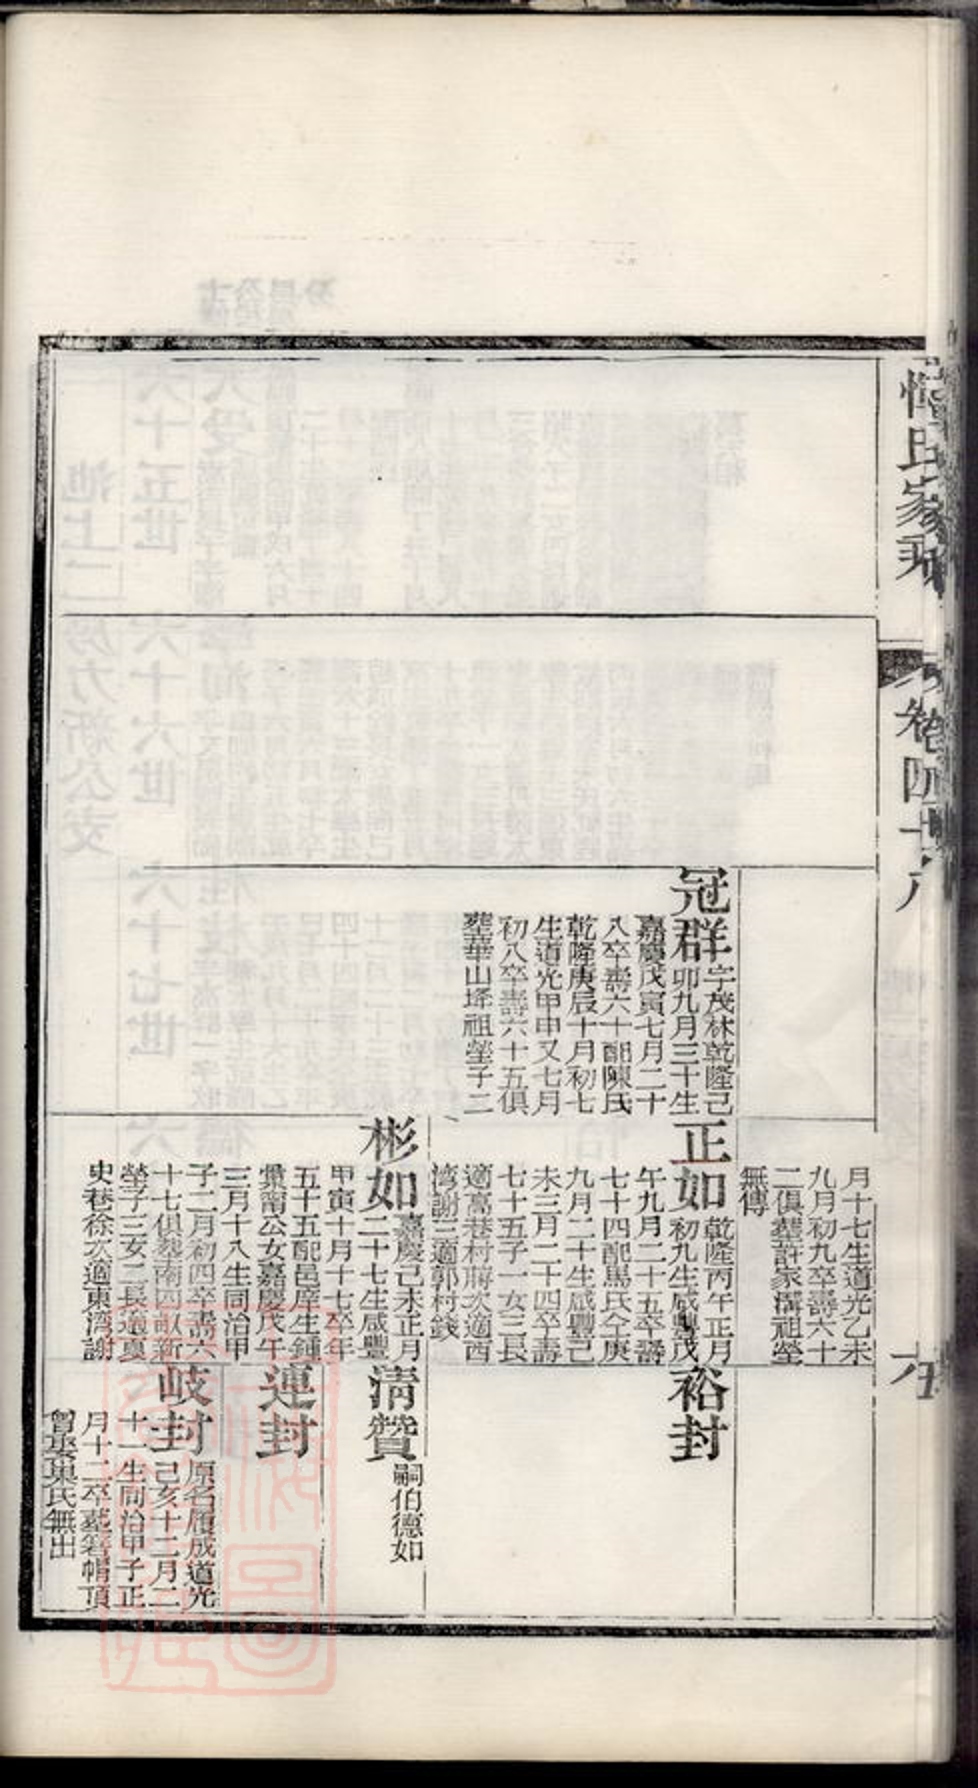 惲氏家乘
卷四十八
冠群字茂林乾隆己
卯九月三十生
嘉慶戊寅七月二十
八卒壽六十配陳氏
乾隆庚辰十月初七
生道光甲申又七月
初八卒壽六十五俱
葬華山垾祖塋子二
月十七生道光乙未
九月初九卒壽六十
二俱葬許家溝祖塋
無傳
正如乾隆丙午正月
初九生咸豐戊
午九月二十五卒壽
七十四配馬氏仝庚
九月二十生咸豐己
未三月二十四卒壽
七十五子一女三長
適高巷村蔣次適西
湾謝三適郭村錢
彬如嘉慶己未正月
二十七生咸豐
甲寅十月十七卒年
五十五配邑庠生鍾
貫甯公女嘉慶戊午
三月十八生同治甲
子二月初四卒壽六
十七俱葬南四畝新
塋子三女二長適裏
史巷徐次適東湾謝
裕封
清贊嗣伯德如
運封
岐封原名履成道光
己亥十二月二
十一生同治甲子正
月十二卒葬箬帽頂
曾娶巢氏無出